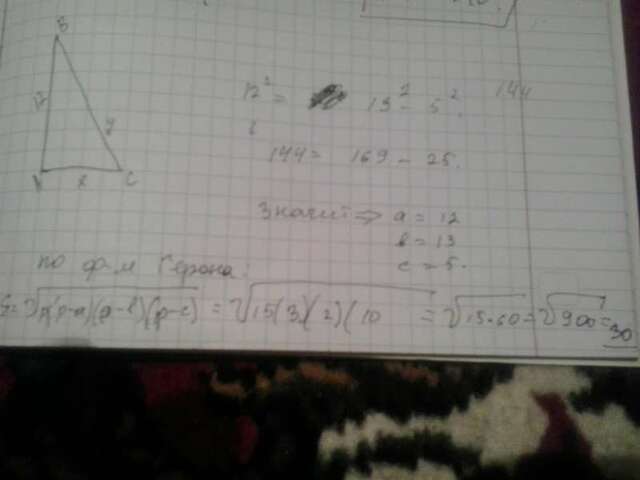 B
12
y
A x C
12² = 13² - 5². 144
144 = 169 - 25.
Значит ⇒ a = 12
b = 13
c = 5.
по ф-ле Герона:
S = √p(p-a)(p-b)(p-c) = √15(3)(2)(10 = √15·60 = √900 = 30